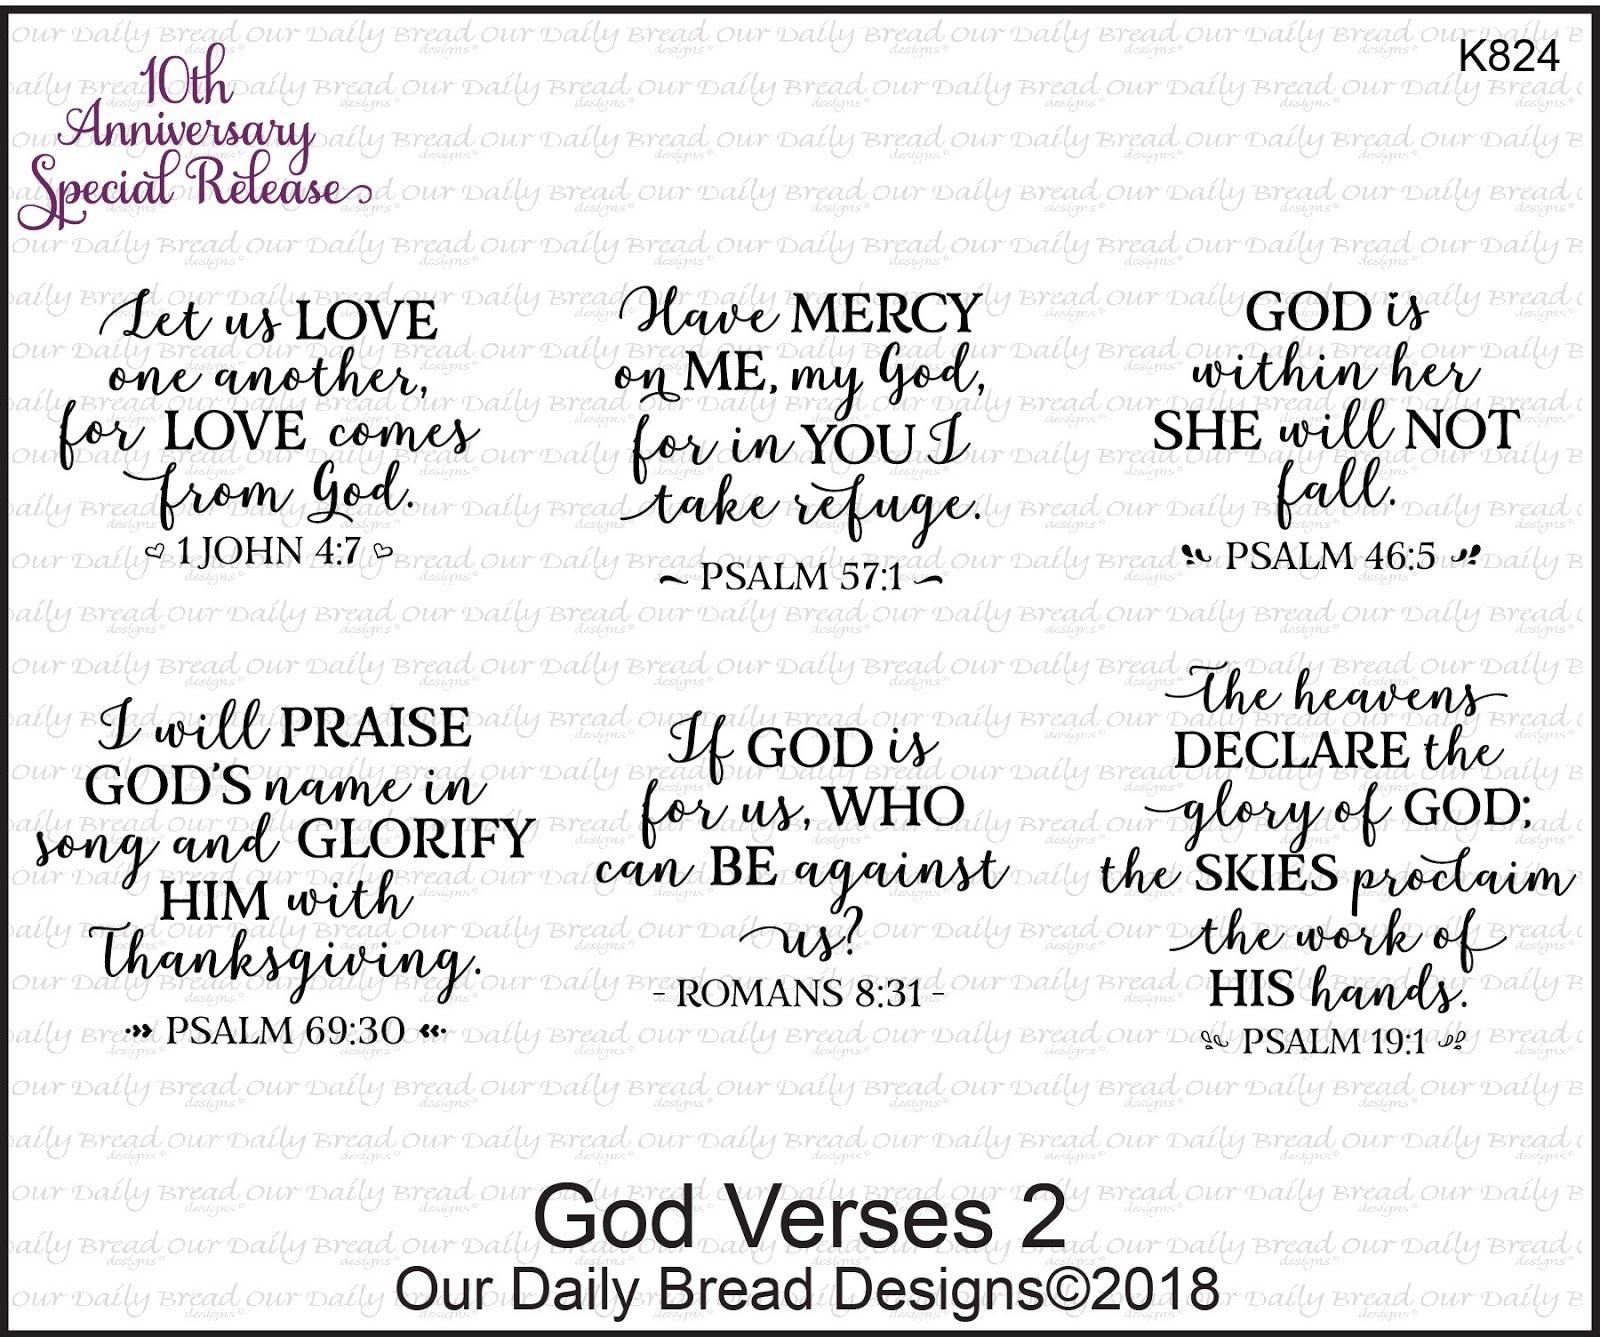 K824
10th
Anniversary
Special Release
Let us LOVE
one another,
for LOVE comes
from God.
1 JOHN 4:7
Have MERCY
on ME, my God,
for in YOU I
take refuge.
~ PSALM 57:1 ~
GOD is
within her
SHE will NOT
fall.
PSALM 46:5
I will PRAISE
GOD'S name in
song and GLORIFY
HIM with
Thanksgiving.
PSALM 69:30
If GOD is
for us, WHO
can BE against
us?
- ROMANS 8:31 -
The heavens
DECLARE the
glory of GOD;
the SKIES proclaim
the work of
HIS hands.
PSALM 19:1
God Verses 2
Our Daily Bread Designs©2018
Our Daily Bread designs®